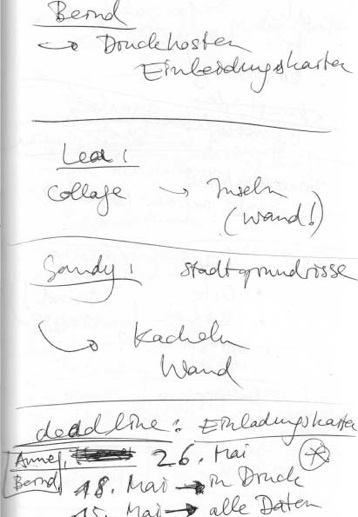 Bernd
→ Druckkosten
Einladungskarten
Lea:
Collage → Inseln
(Wand!)
Sandy: Stadtgrundrisse
→ Kacheln
Wand
deadline: Einladungskarte
Anne, 26. Mai
Bernd 18. Mai → in Druck
15. Mai → alle Daten